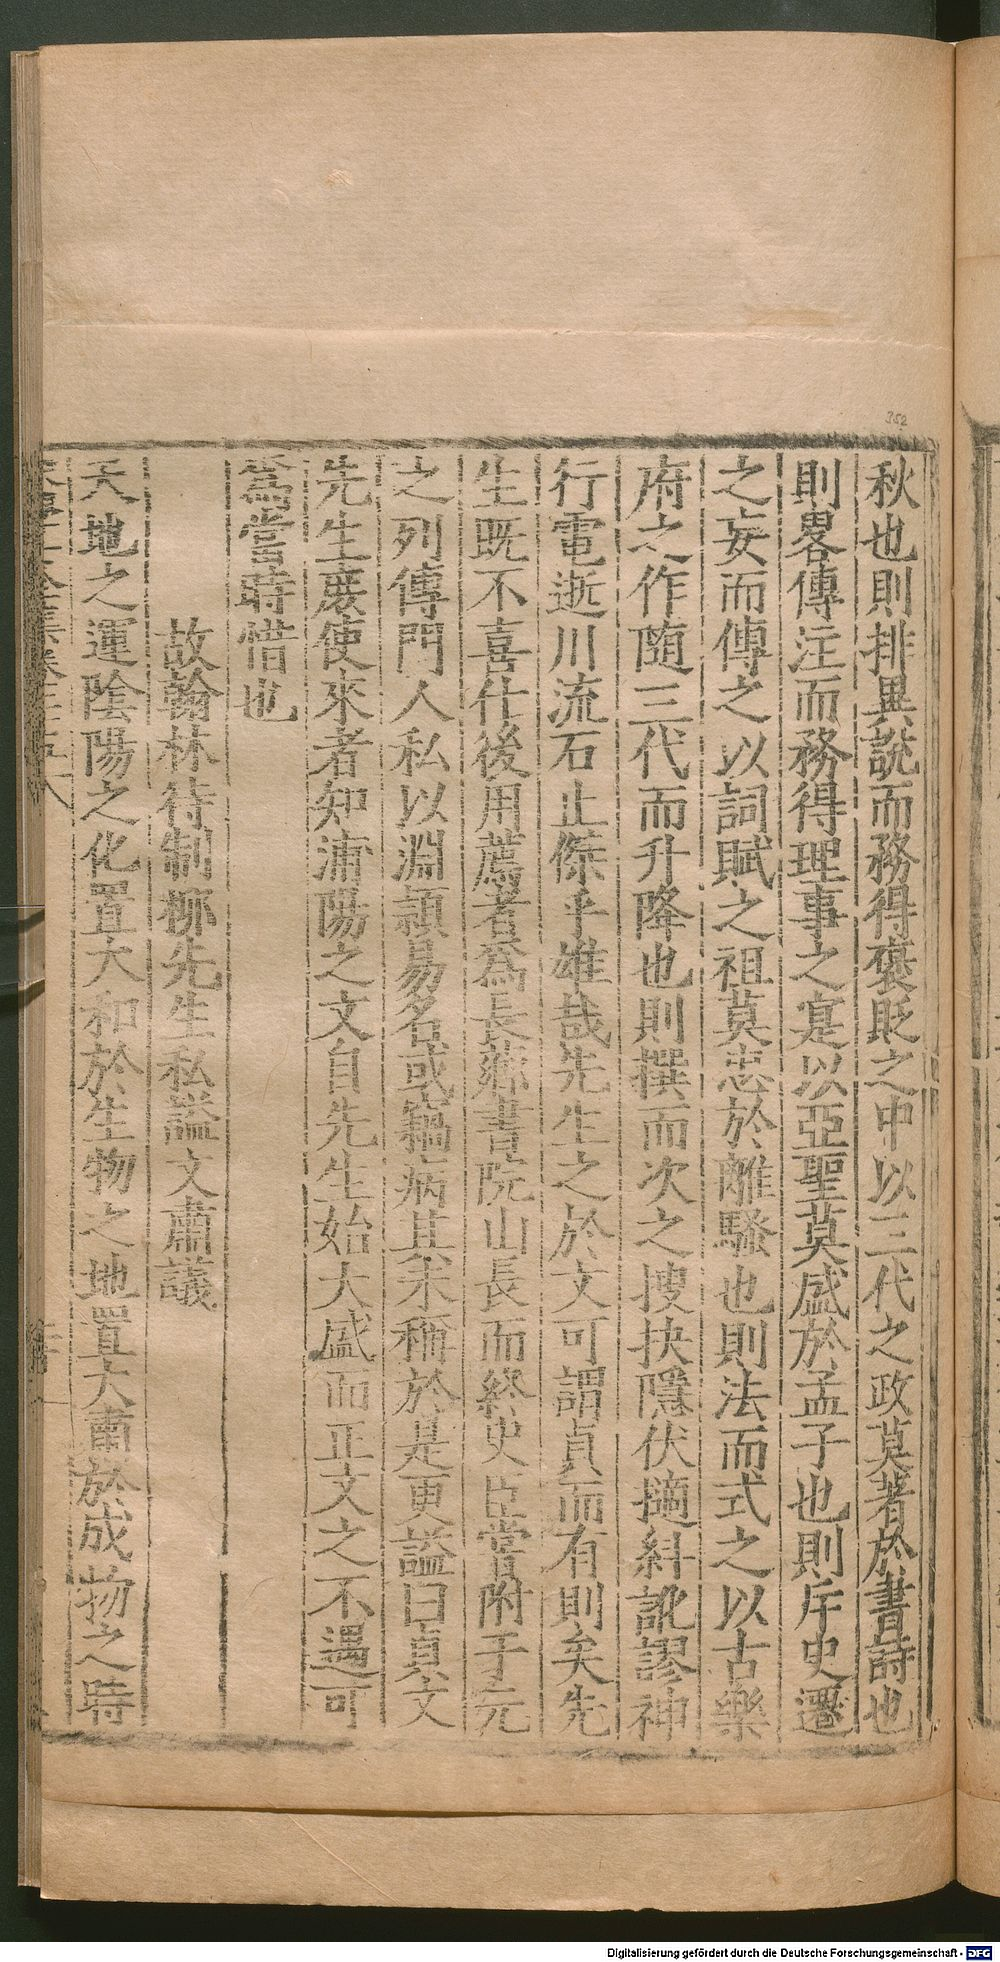 352
秋也則排異說而務得褒貶之中以三代之政莫著於書詩也
則畧傳注而務得理事之寔以亞聖莫盛於孟子也則斥史遷
之妄而傳之以詞賦之祖莫忠於離騷也則法而式之以古樂
府之作隨三代而升降也則撰而次之搜抉隱伏擿糾訛謬神
行電逝川流石止傑乎雄哉先生之於文可謂貞而有則矣先
生既不喜仕後用薦者爲長薌書院山長而終史臣嘗附于元
之列傳門人私以淵穎易名或竊病其未稱於是更謚曰貞文
先生庶使來者知浦陽之文自先生始大盛而正文之不遇可
爲當時惜也
故翰林待制柳先生私謚文肅議
天地之運陰陽之化置大和於生物之地置大肅於成物之時
Digitalisierung gefördert durch die Deutsche Forschungsgemeinschaft - DFG